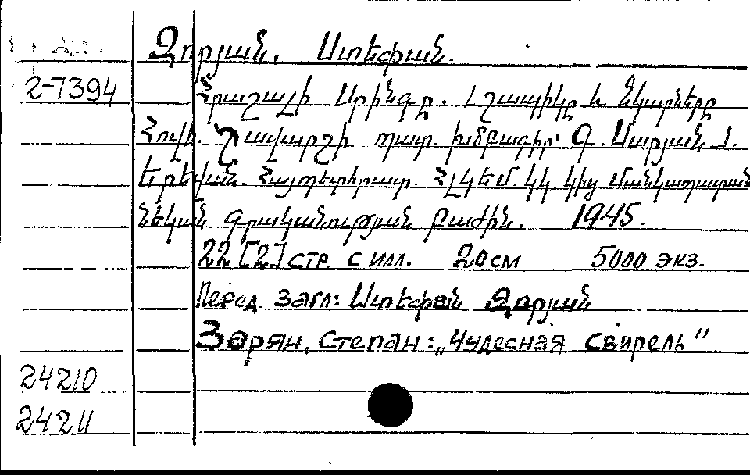 Զորյան, Ստեփան.
2-7394
Հրաշալի Սրինգը. Լշապիկը և նկարները
Հովհ. Շավարշի պատ. խմբագիր՝ Գ. Սարյան
Երևան. Հայպետհրատ. ՀԼԿԵՄ. ԿԿ կից Մանկապատան
նեկան գրականության բաժին. 1945.
22 [2] стр. с илл. 20 см 5000 экз.
Перед загл: Ստեփան Զորյան
Зорян, Степан: „Чудесная свирель"
24210
24211